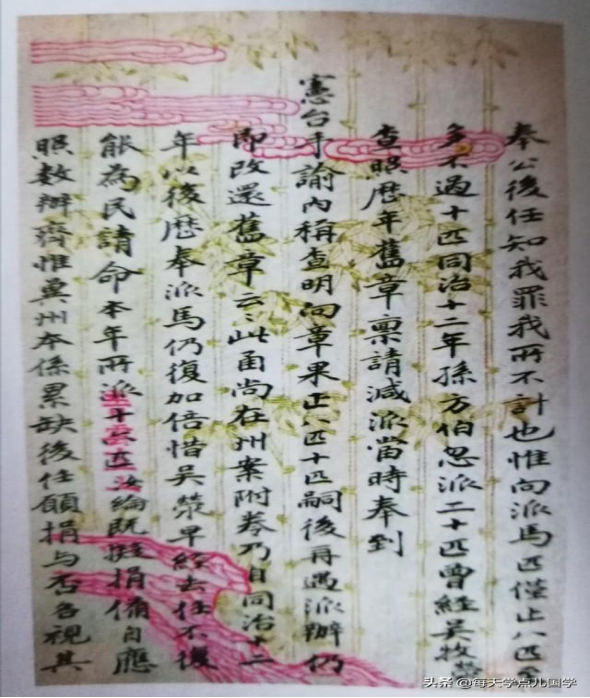 奉公後任知我罪我所不計也惟向派馬匹僅止八匹至
多不過十匹同治十二年孫方伯忽派二十匹曾經吳牧
查照歷年舊章稟請減派當時奉到
憲台手諭內稱查明向章果止八匹十匹嗣後再遇派辦仍
即改還舊章云云此函尚在州案附卷乃自同治十二
年以後歷奉派馬仍復加倍惜吳滎早經去任不復
能為民請命本年所派十六匹汝綸既擬捐備自應
照数辦齊惟冀州本係累缺後任願捐与否各視其
头条 @每天学点儿国学